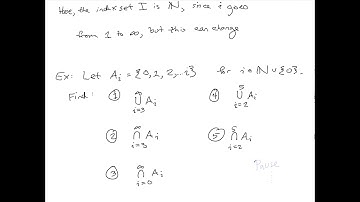 Here, the index set I is ℕ, since i goes
from 1 to ∞, but this can change
Ex: Let Aᵢ = {0,1,2,...i} for i∈ℕ∪{0}.
Find: ① ∞∪i=3 Aᵢ ④ 5∪i=2 Aᵢ
② ∞∩i=3 Aᵢ ⑤ 5∩i=2 Aᵢ
③ ∞∩i=0 Aᵢ
Pause